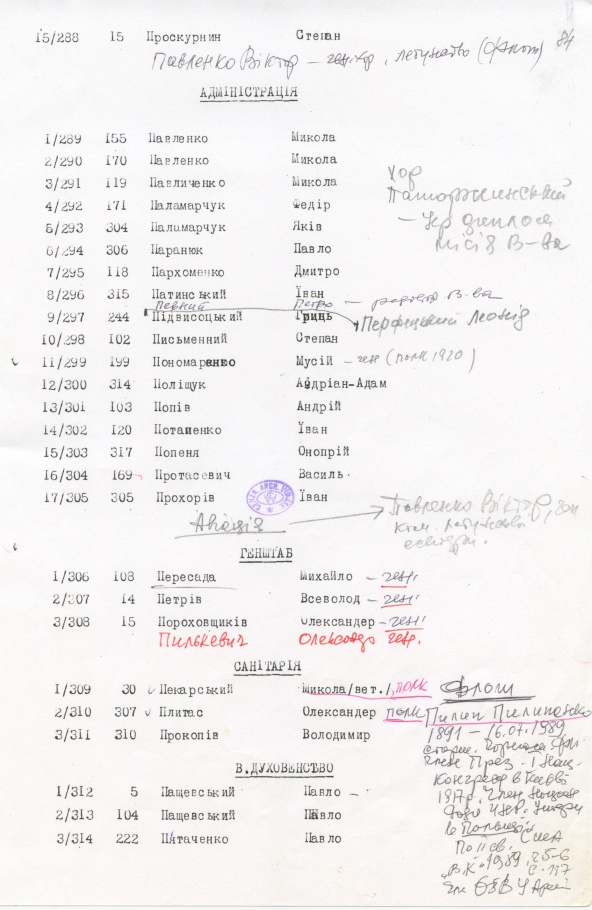 15/288 15 Проскурнин Степан
Павленко Віктор – ген. хор, летунство 84
АДМІНІСТРАЦІЯ
1/289 155 Павленко Микола
2/290 170 Павленко Микола
3/291 119 Павличенко Микола
4/292 171 Паламарчук Федір
5/293 304 Паламарчук Яків
6/294 306 Паранюк Павло
7/295 118 Пархоменко Дмитро
8/296 315 Патинський Іван
Певний Петро – редактор В-ва
9/297 244 Підвисоцький Гринь
Перфецький Леонід
10/298 102 Письменний Степан
11/299 199 Пономаренко Мусій – ген (полк 1920)
12/300 314 Поліщук Андріан-Адам
13/301 103 Попів Андрій
14/302 120 Потапенко Їван
15/303 317 Попеня Онопрій
16/304 169 Протасевич Василь
17/305 305 Прохорів Їван
хор
Паторжинський
– Укр диплом
місія В-ва
Авіація
Павленко Віктор,
ГЕНШТАБ
1/306 108 Пересада Михайло – ген.
2/307 14 Петрів Всеволод – ген.
3/308 15 Пороховщиков Олександер – ген.
Пилькевич Олександр ген.
САНІТАРІЯ
1/309 30 Пекарський Микола/вет./, полк
2/310 307 Плитас Олександер полк
3/311 310 Прокопів Володимир
Флот
Пилип Пилипенко
1891 – 16.07.1989
Член През. 1 Нац.
Конгресу в Києві
1917р. Член
в Польщі
По ІІ св. США
"В.К" 1989, 25-6
с. 117
В.ДУХОВЕНСТВО
1/312 5 Пащевський Павло
2/313 104 Пащевський Павло
3/314 222 Пятаченко Павло